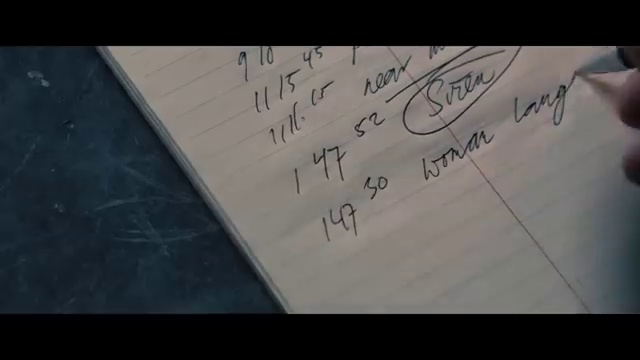 9 10
11 15 45
11 16 15 near
1 47 52 Siren
147 30 woman laug